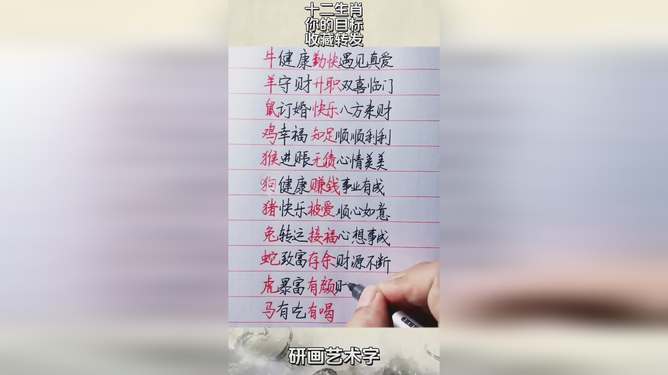 十二生肖
你的目标
收藏转发
牛健康勤快遇见真爱
羊守财升职双喜临门
鼠订婚快乐八方来财
鸡幸福知足顺顺利利
猴进账无债心情美美
狗健康赚钱事业有成
猪快乐被爱顺心如意
兔转运接福心想事成
蛇致富存余财源不断
虎暴富有颜
马有吃有喝
研画艺术字